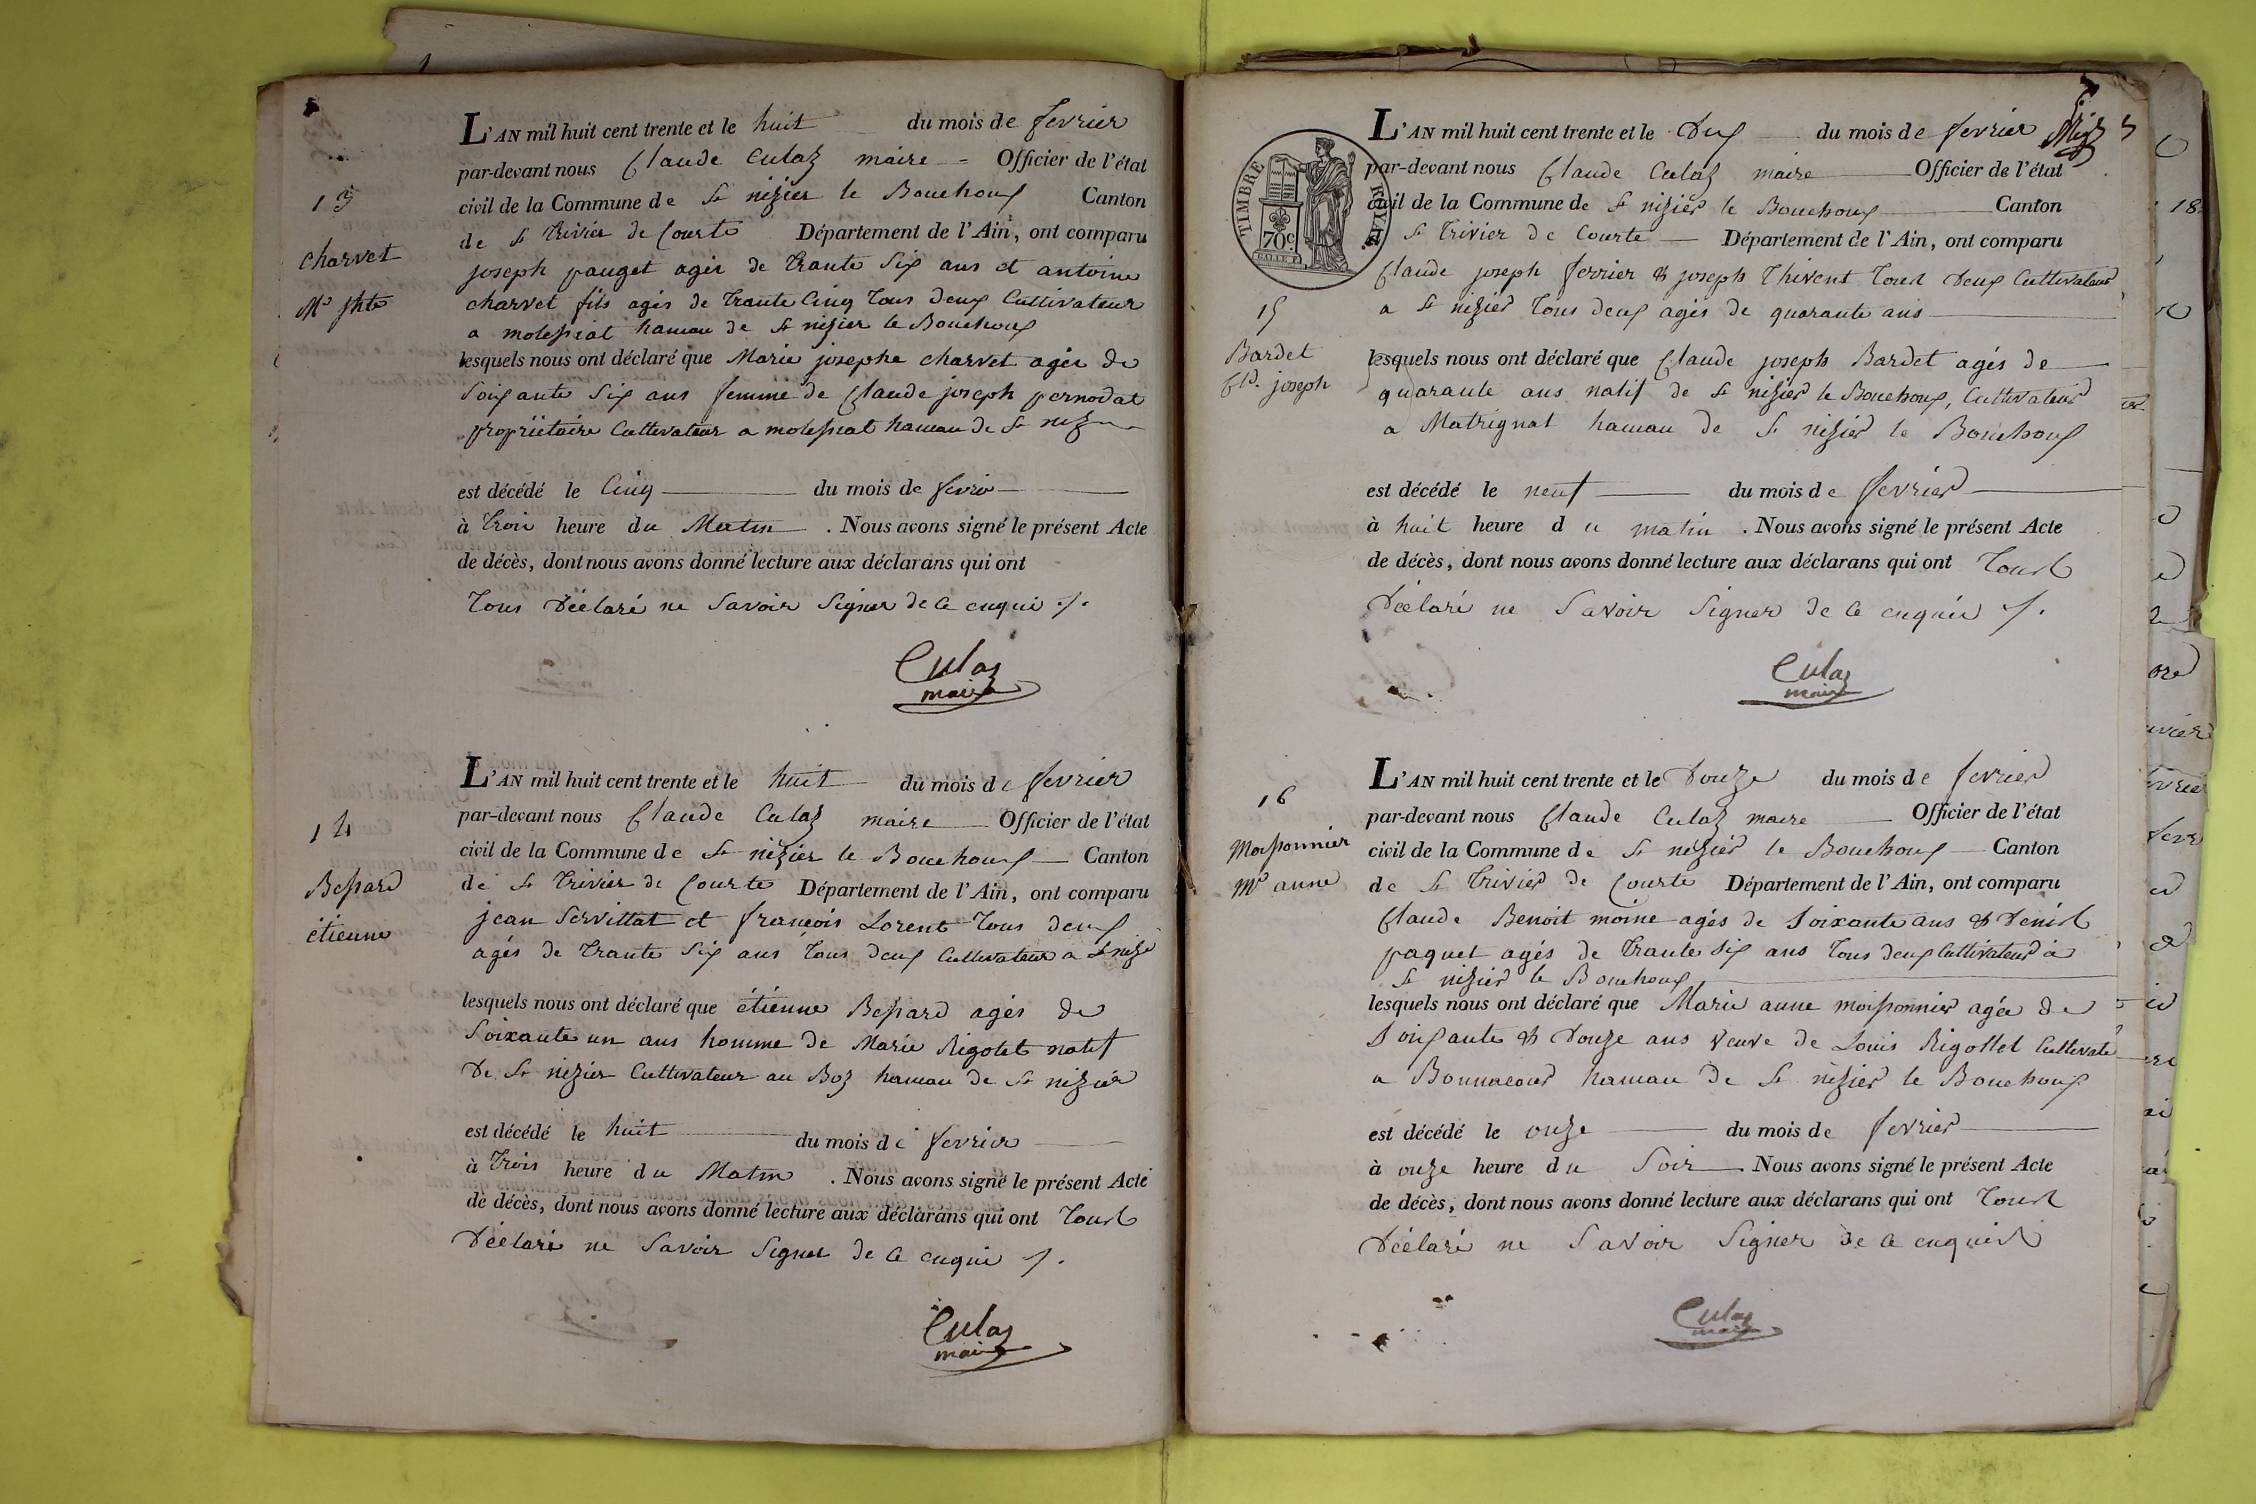 13
Charvet
Me Jhte
L'AN mil huit cent trente et le huit du mois de fevrier
par-devant nous Claude Culaz maire Officier de l'état
civil de la Commune de St nizier le Bouchoux Canton
de St Trivier de Courte Département de l'Ain, ont comparu
joseph pauget agér de trante Six ans et antoine
charvet fils agés de trante Cinq Tous deux Cultivateur
a molessiat hamau de St nizier le Bouchoux
lesquels nous ont déclaré que Marie josephe charvet agée de
Soixante Six ans femme de Claude joseph pernodat
propriétaire Cultivateur a molessiat hamau de St niz
est décédé le Cinq du mois de fevrier
à Trois heure du Matin . Nous avons signé le présent Acte
de décès, dont nous avons donné lecture aux déclarans qui ont
Tous Déclaré ne Savoir Signer de ce enquis ./.
Culaz
maire
14
Bessard
étienne
L'AN mil huit cent trente et le huit du mois de fevrier
par-devant nous Claude Culaz maire Officier de l'état
civil de la Commune de St nizier le Bouchoux Canton
de St Trivier de Courte Département de l'Ain, ont comparu
jean Servillat et francois Lorent Tous deux
agés de trante Six ans Tous deux Cultivateur a St nizié
lesquels nous ont déclaré que étienne Bessard agés de
Soixante un ans homme de Marie Rigolet natif
De St nizier Cultivateur au Boz hamau de St nizier
est décédé le huit du mois de fevrier
à Trois heure du Matin . Nous avons signé le présent Acte
de décès, dont nous avons donné lecture aux déclarans qui ont Tous
Déclaré ne Savoir Signer de ce enquis ./.
Culaz
maire
TIMBRE ROYAL
70c.
15
Bardet
Cld. joseph
L'AN mil huit cent trente et le Dix du mois de fevrier
par-devant nous Claude Culaz maire Officier de l'état
civil de la Commune de St nizier le Bouchoux Canton
St Trivier de Courte Département de l'Ain, ont comparu
Claude joseph ferrier & joseph Thivent Tous Deux Cultivateur
a St nizier Tous deux agés de quarante ans
lesquels nous ont déclaré que Claude joseph Bardet agés de
quarante ans natif de St nizier le Bouchoux, Cultivateur
a Matrignat hamau de St nizier le Bouchoux
est décédé le neuf du mois de fevrier
à huit heure du matin . Nous avons signé le présent Acte
de décès, dont nous avons donné lecture aux déclarans qui ont Tous
Déclaré ne Savoir Signer de ce enquis ./.
Culaz
maire
16
Moissonnier
Me anne
L'AN mil huit cent trente et le Douze du mois de fevrier
par-devant nous Claude Culaz maire Officier de l'état
civil de la Commune de St nizier le Bouchoux Canton
de St Trivier de Courte Département de l'Ain, ont comparu
Claude Benoit moine agés de Soixante ans & Denis
paquet agés de trante Six ans Tous deux Cultivateur à
St nizier le Bouchoux
lesquels nous ont déclaré que Marie anne moissonnier agée de
Soixante & Douze ans Veuve de Louis Rigollet Cultivate
a Bonnacour hamau de St nizier le Bouchoux
est décédé le onze du mois de fevrier
à onze heure du Soir Nous avons signé le présent Acte
de décès, dont nous avons donné lecture aux déclarans qui ont Tous
Déclaré ne Savoir Signer de ce enquis
Culaz
maire